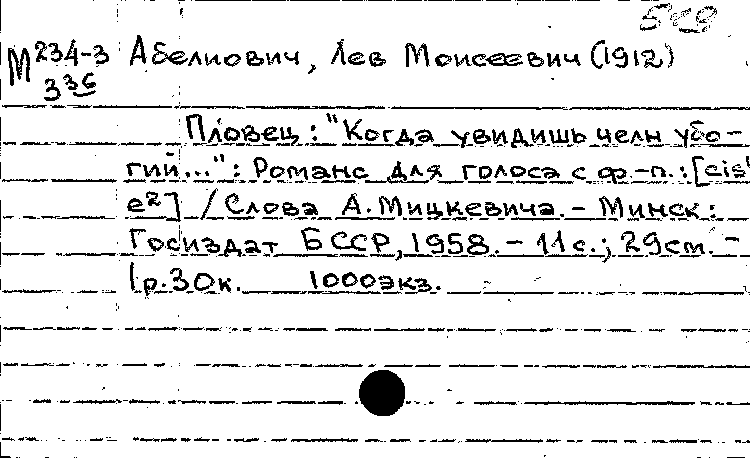 529
М 234-3 Абелиович, Лев Моисеевич (1912)
336
Пловец: "Когда увидишь челн убо-
гий...": Романс для голоса с ф.-п.: [cis¹
e²] / Слова А. Мицкевича. - Минск:
Госиздат БССР, 1958. - 11 с.; 29см. -
1р.30к. 1000экз.